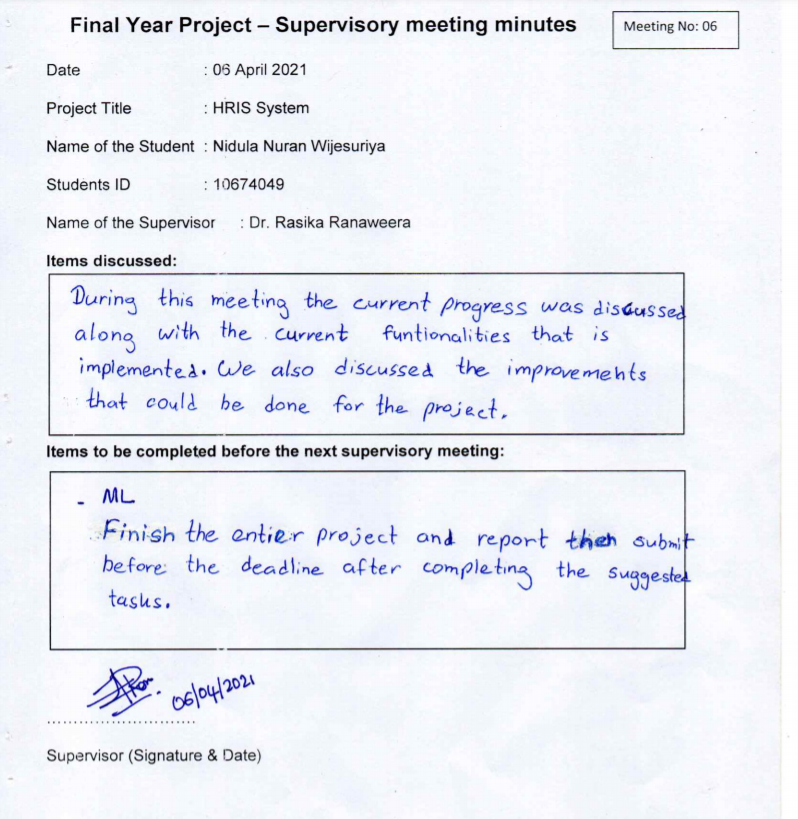 Final Year Project – Supervisory meeting minutes
Meeting No: 06
Date : 06 April 2021
Project Title : HRIS System
Name of the Student : Nidula Nuran Wijesuriya
Students ID : 10674049
Name of the Supervisor : Dr. Rasika Ranaweera
Items discussed:
During this meeting the current progress was discussed
along with the current funtionalities that is
implemented. We also discussed the improvements
that could be done for the project.
Items to be completed before the next supervisory meeting:
- ML
Finish the entier project and report then submit
before the deadline after completing the suggested
tasks.
06/04/2021
Supervisor (Signature & Date)